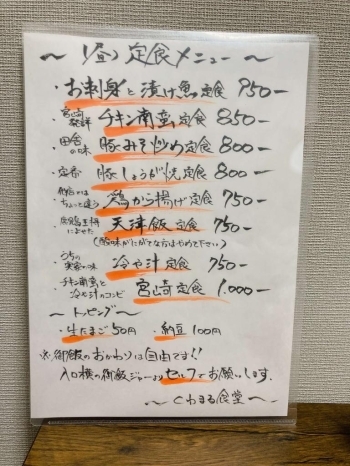 〜 (昼) 定食メニュー 〜
・お刺身と漬け魚定食 950ー
・宮崎発祥 チキン南蛮定食 850ー
・田舎の味 豚みそ炒め定食 800ー
・定番 豚しょうが焼定食 800ー
・他店とはちょっと違う 鶏から揚げ定食 750ー
天津飯定食 750ー
(酸味がにがてな方はやめて下さい)
・うちの実家の味 冷や汁定食 750ー
・チキン南蛮と冷や汁のコンビ 宮崎定食 1,000ー
〜トッピング〜
・生たまご50円 ・納豆100円
※御飯のおかわりは自由です!!
入口横の御飯ジャーよりセルフでお願いします。
〜くわまる食堂〜